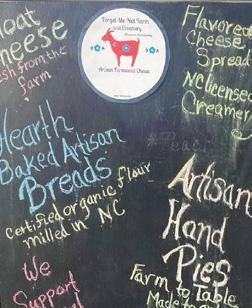 Goat
Cheese
esh from the
farm
Forget-Me-Not Farm
and Creamery
Artisan Farmstead Cheese
Flavored
Cheese
Spread
NC licensed
Creamery
Hearth
Baked Artisan
Breads
Certified organic flour
milled in NC
Artisan
Hand
Pies
Farm to Table
We
Support